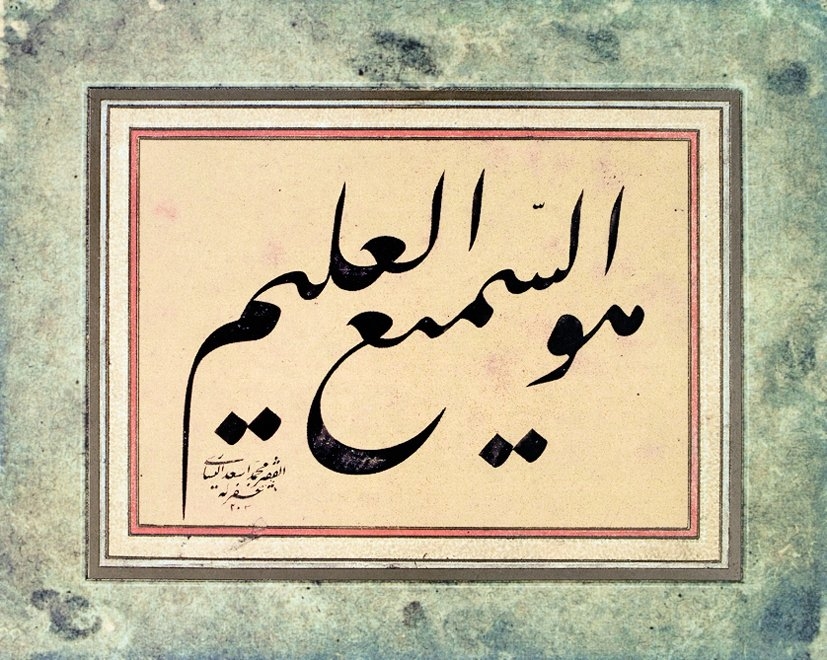 هو السّميع العليم
الفقير محمد اسعد اليسارى
غفر له